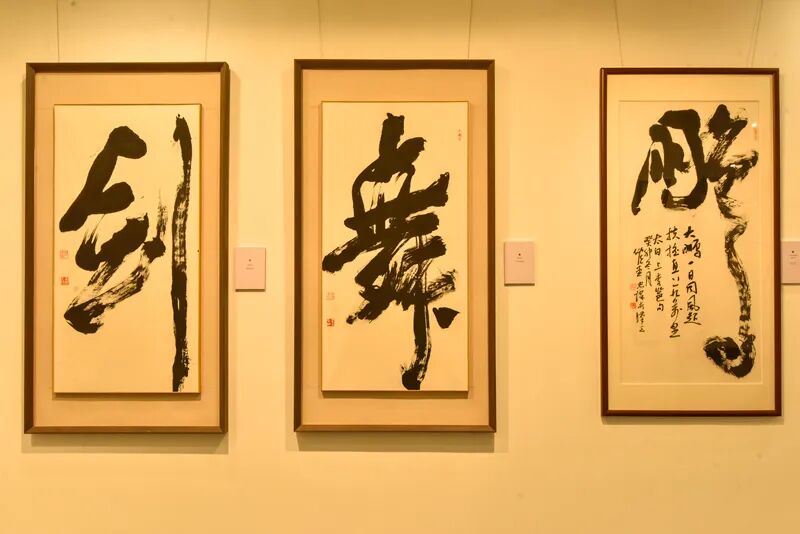 剑
舞
鹏
大鹏一日同风起
扶摇直上九万里
太白上李邕句
癸卯冬月